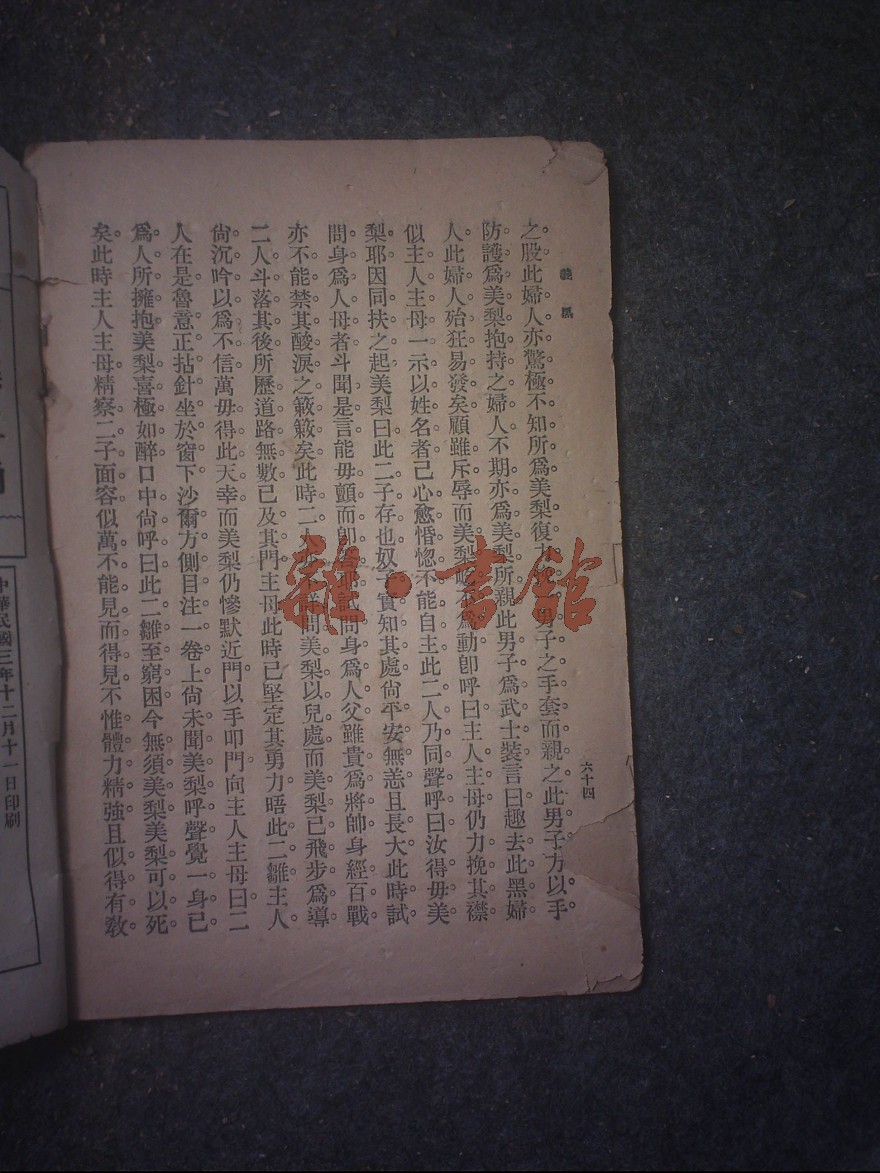 義黑
六十四
之股此婦人亦驚極不知所爲美梨復力男子之手套而親之此男子方以手
防護爲美梨抱持之婦人不期亦爲美梨所親此男子爲武士裝言曰趣去此黑婦
人此婦人殆狂易發矣顧雖斥辱而美梨爲動卽呼曰主人主母仍力挽其襟
似主人主母一示以姓名者己心愈惛惚不能自主此二人乃同聲呼曰汝得毋美
梨耶因同扶之起美梨曰此二子存也奴子實知其處尙平安無恙且長大此時試
問身爲人母者斗聞是言能毋顫而卽試問身爲人父雖貴爲將帥身經百戰
亦不能禁其酸淚之簌簌矣此時二人問美梨以兒處而美梨已飛步爲導
二人斗落其後所歷道路無數已及其門主母此時已堅定其勇力晤此二雛主人
尙沉吟以爲不信萬毋得此天幸而美梨仍慘默近門以手叩門向主人主母曰二
人在是魯意正拈針坐於窗下沙爾方側目注一卷上尙未聞美梨呼聲覺一身已
爲人所擁抱美梨喜極如醉口中尙呼曰此二雛至窮困今無須美梨美梨可以死
矣此時主人主母精察二子面容似萬不能見而得見不惟體力精強且似得有敎
中華民國三年十二月十一日印刷
雜·書館